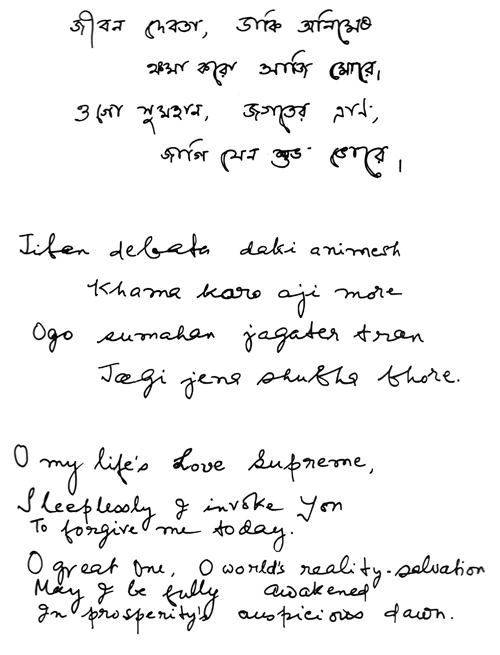 জীবন দেবতা, ডাকি অনিমেষ
ক্ষমা করো আজি মোরে,
ওগো সুমহান, জগতের ত্রাণ,
জাগি যেন শুভ ভোরে।
Jiban debata daki animesh
Khama karo aji more
Ogo sumahan jagater tran
Jagi jena shubha bhore.
O my life's Love Supreme,
Sleeplessly I invoke You
To forgive me today.
O great One, O world's reality-salvation
May I be fully awakened
In prosperity's auspicious dawn.